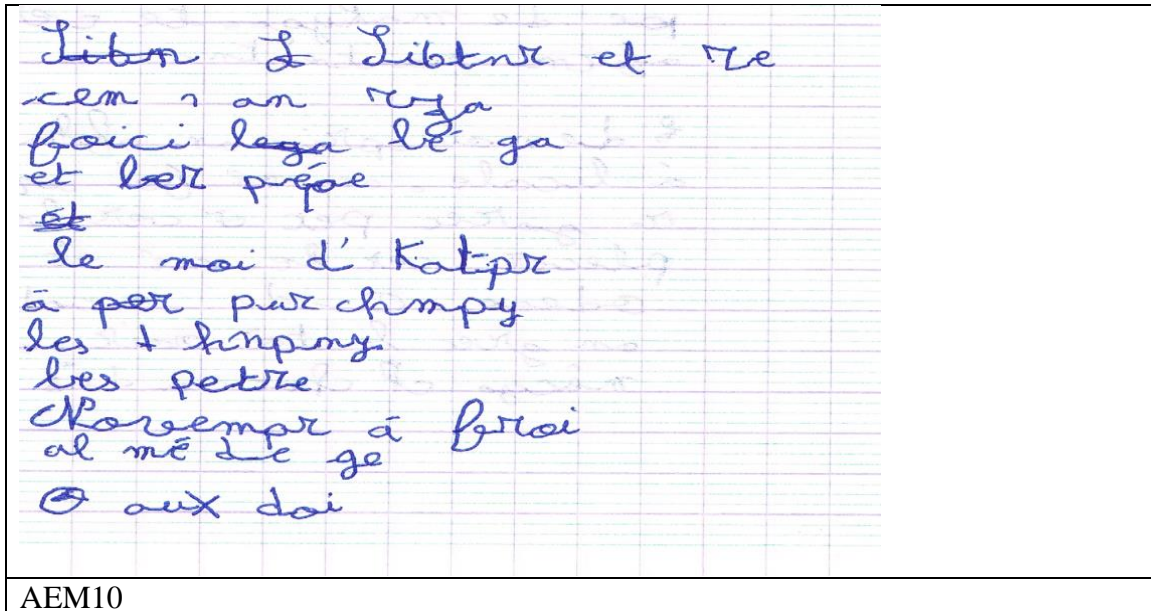 Libn L Libtnr et re
cem an rza
foici lega lé ga
et ler prépe
et
le moi d'Katpr
à per pur chmpy
les + hnpmy.
les petre
Novempr à froi
al mé de ge
aux doi
AEM10